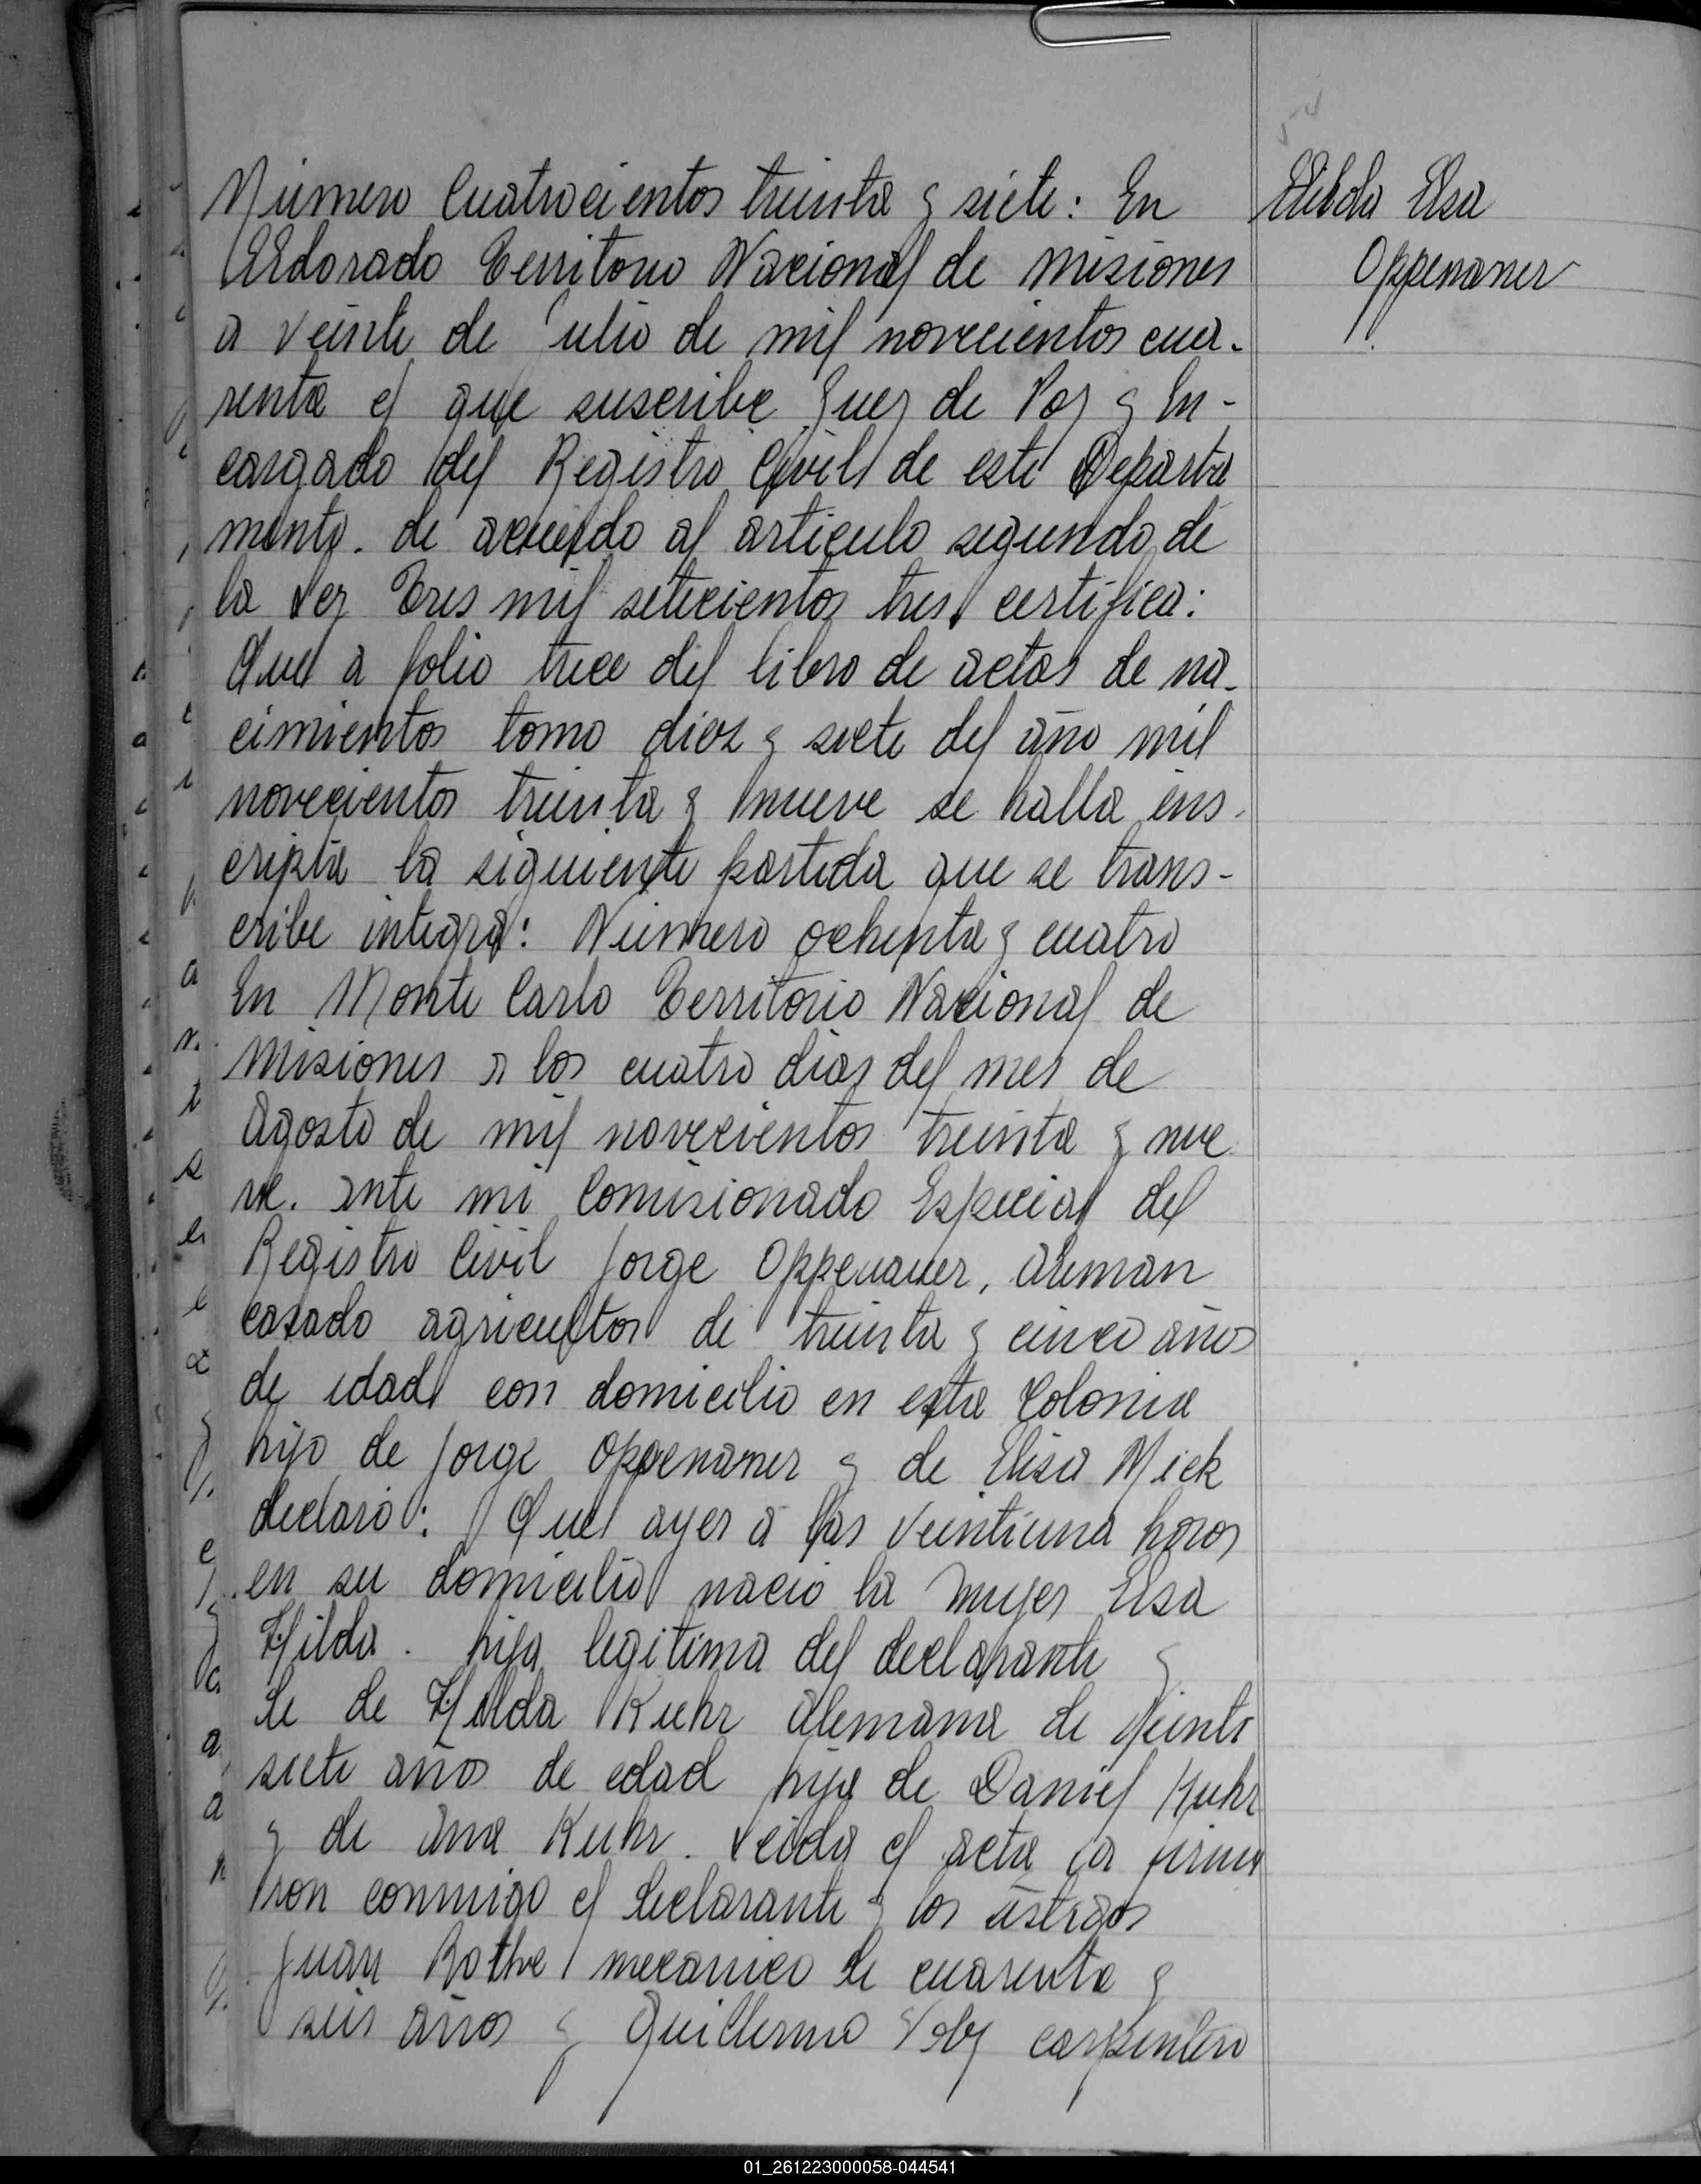 Número Cuatrocientos treinta y siete: En
Eldorado Territorio Nacional de Misiones
a veinte de Julio de mil novecientos cua-
renta el que suscribe Juez de Paz y En-
cargado del Registro Civil de este Departa
mento. de acuerdo al articulo segundo de
la Ley Tres mil setecientos tres, certifica:
Que a folio trece del libro de actas de na-
cimientos tomo diez y siete del año mil
novecientos treinta y nueve se halla ins-
cripta la siguiente partida que se trans-
cribe integra: Número ochenta y cuatro
En Monte Carlo Territorio Nacional de
Misiones a los cuatro dias del mes de
Agosto de mil novecientos treinta y nue
ve. ante mi Comisionado Especial del
Registro Civil Jorge Oppenauer, Aleman
casado agricultor de treinta y cinco años
de edad con domicilio en esta Colonia
hijo de Jorge Oppenauer y de Elisa Mick
declaró: Que ayer a las veintiuna horas
en su domicilio nació la mujer Elsa
Hilda. hija legitima del declarante y
de de Hilda Kuhr Alemana de veinti
siete años de edad hija de Daniel Kuhr
y de Ana Kuhr. Leida el acta la firma
ron conmigo el declarante y los testigos
Juan Rothe mecanico de cuarenta y
seis años y Guillermo carpintero
Hilda Elsa
Oppenauer
01_261223000058-044541